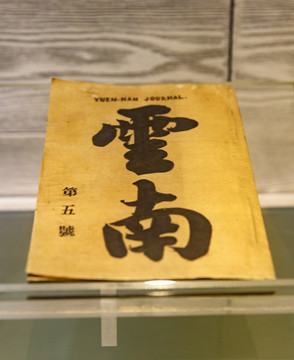 YUEN-NAN JOURNAL.
雲南
第五號